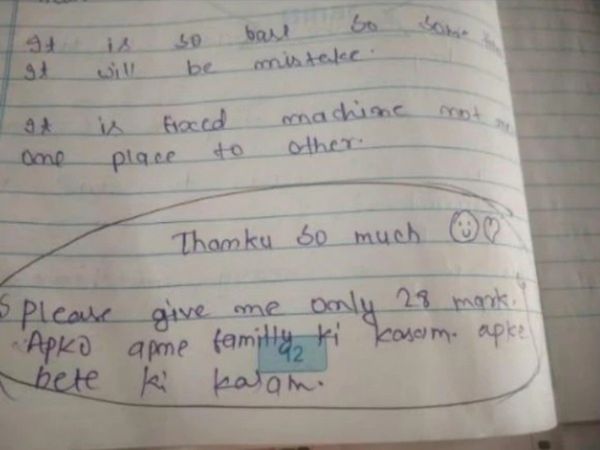 It is so bast so some
It will be mistake.
It is fixced machine not
one place to other.
Thanku so much
Please give me only 28 mark.
Apko apne familly ki kasam. apke
bete ki kasam.
92